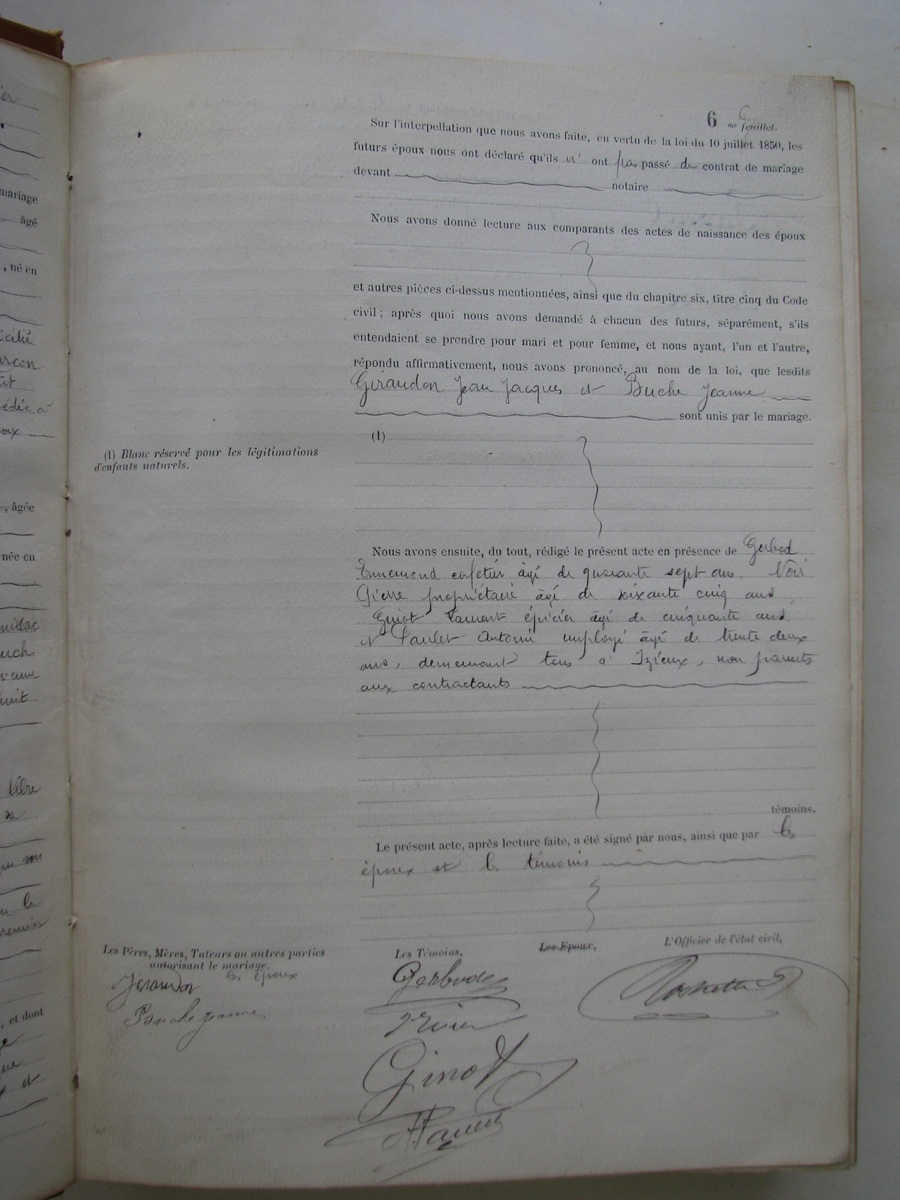 6 me feuillet.
Sur l'interpellation que nous avons faite, en vertu de la loi du 10 juillet 1850, les
futurs époux nous ont déclaré qu'ils n' ont pas passé de contrat de mariage
devant notaire
Nous avons donné lecture aux comparants des actes de naissance des époux
et autres pièces ci-dessus mentionnées, ainsi que du chapitre six, titre cinq du Code
civil ; après quoi nous avons demandé à chacun des futurs, séparément, s'ils
entendaient se prendre pour mari et pour femme, et nous ayant, l'un et l'autre,
répondu affirmativement, nous avons prononcé, au nom de la loi, que lesdits
Giraudon Jean Jacques et Buche Jeanne
sont unis par le mariage.
(1)
(1) Blanc réservé pour les légitimations
d'enfants naturels.
Nous avons ensuite, du tout, rédigé le présent acte en présence de
Ennemond cafetier âgé de quarante sept ans.
Pierre propriétaire âgé de soixante cinq ans,
Ginot Laurent épicier âgé de cinquante ans
et Antoine employé âgé de trente deux
ans, demeurant tous à Izieux, non parents
aux contractants
témoins.
Le présent acte, après lecture faite, a été signé par nous, ainsi que par les
époux et les témoins
Les Pères, Mères, Tuteurs ou autres parties
autorisant le mariage.
les époux
Giraudon
Buche Jeanne
Les Témoins,
Ginot
Les Epoux,
L'Officier de l'état civil,
mariage
âgé
, né en
âgée
née en
, et dont